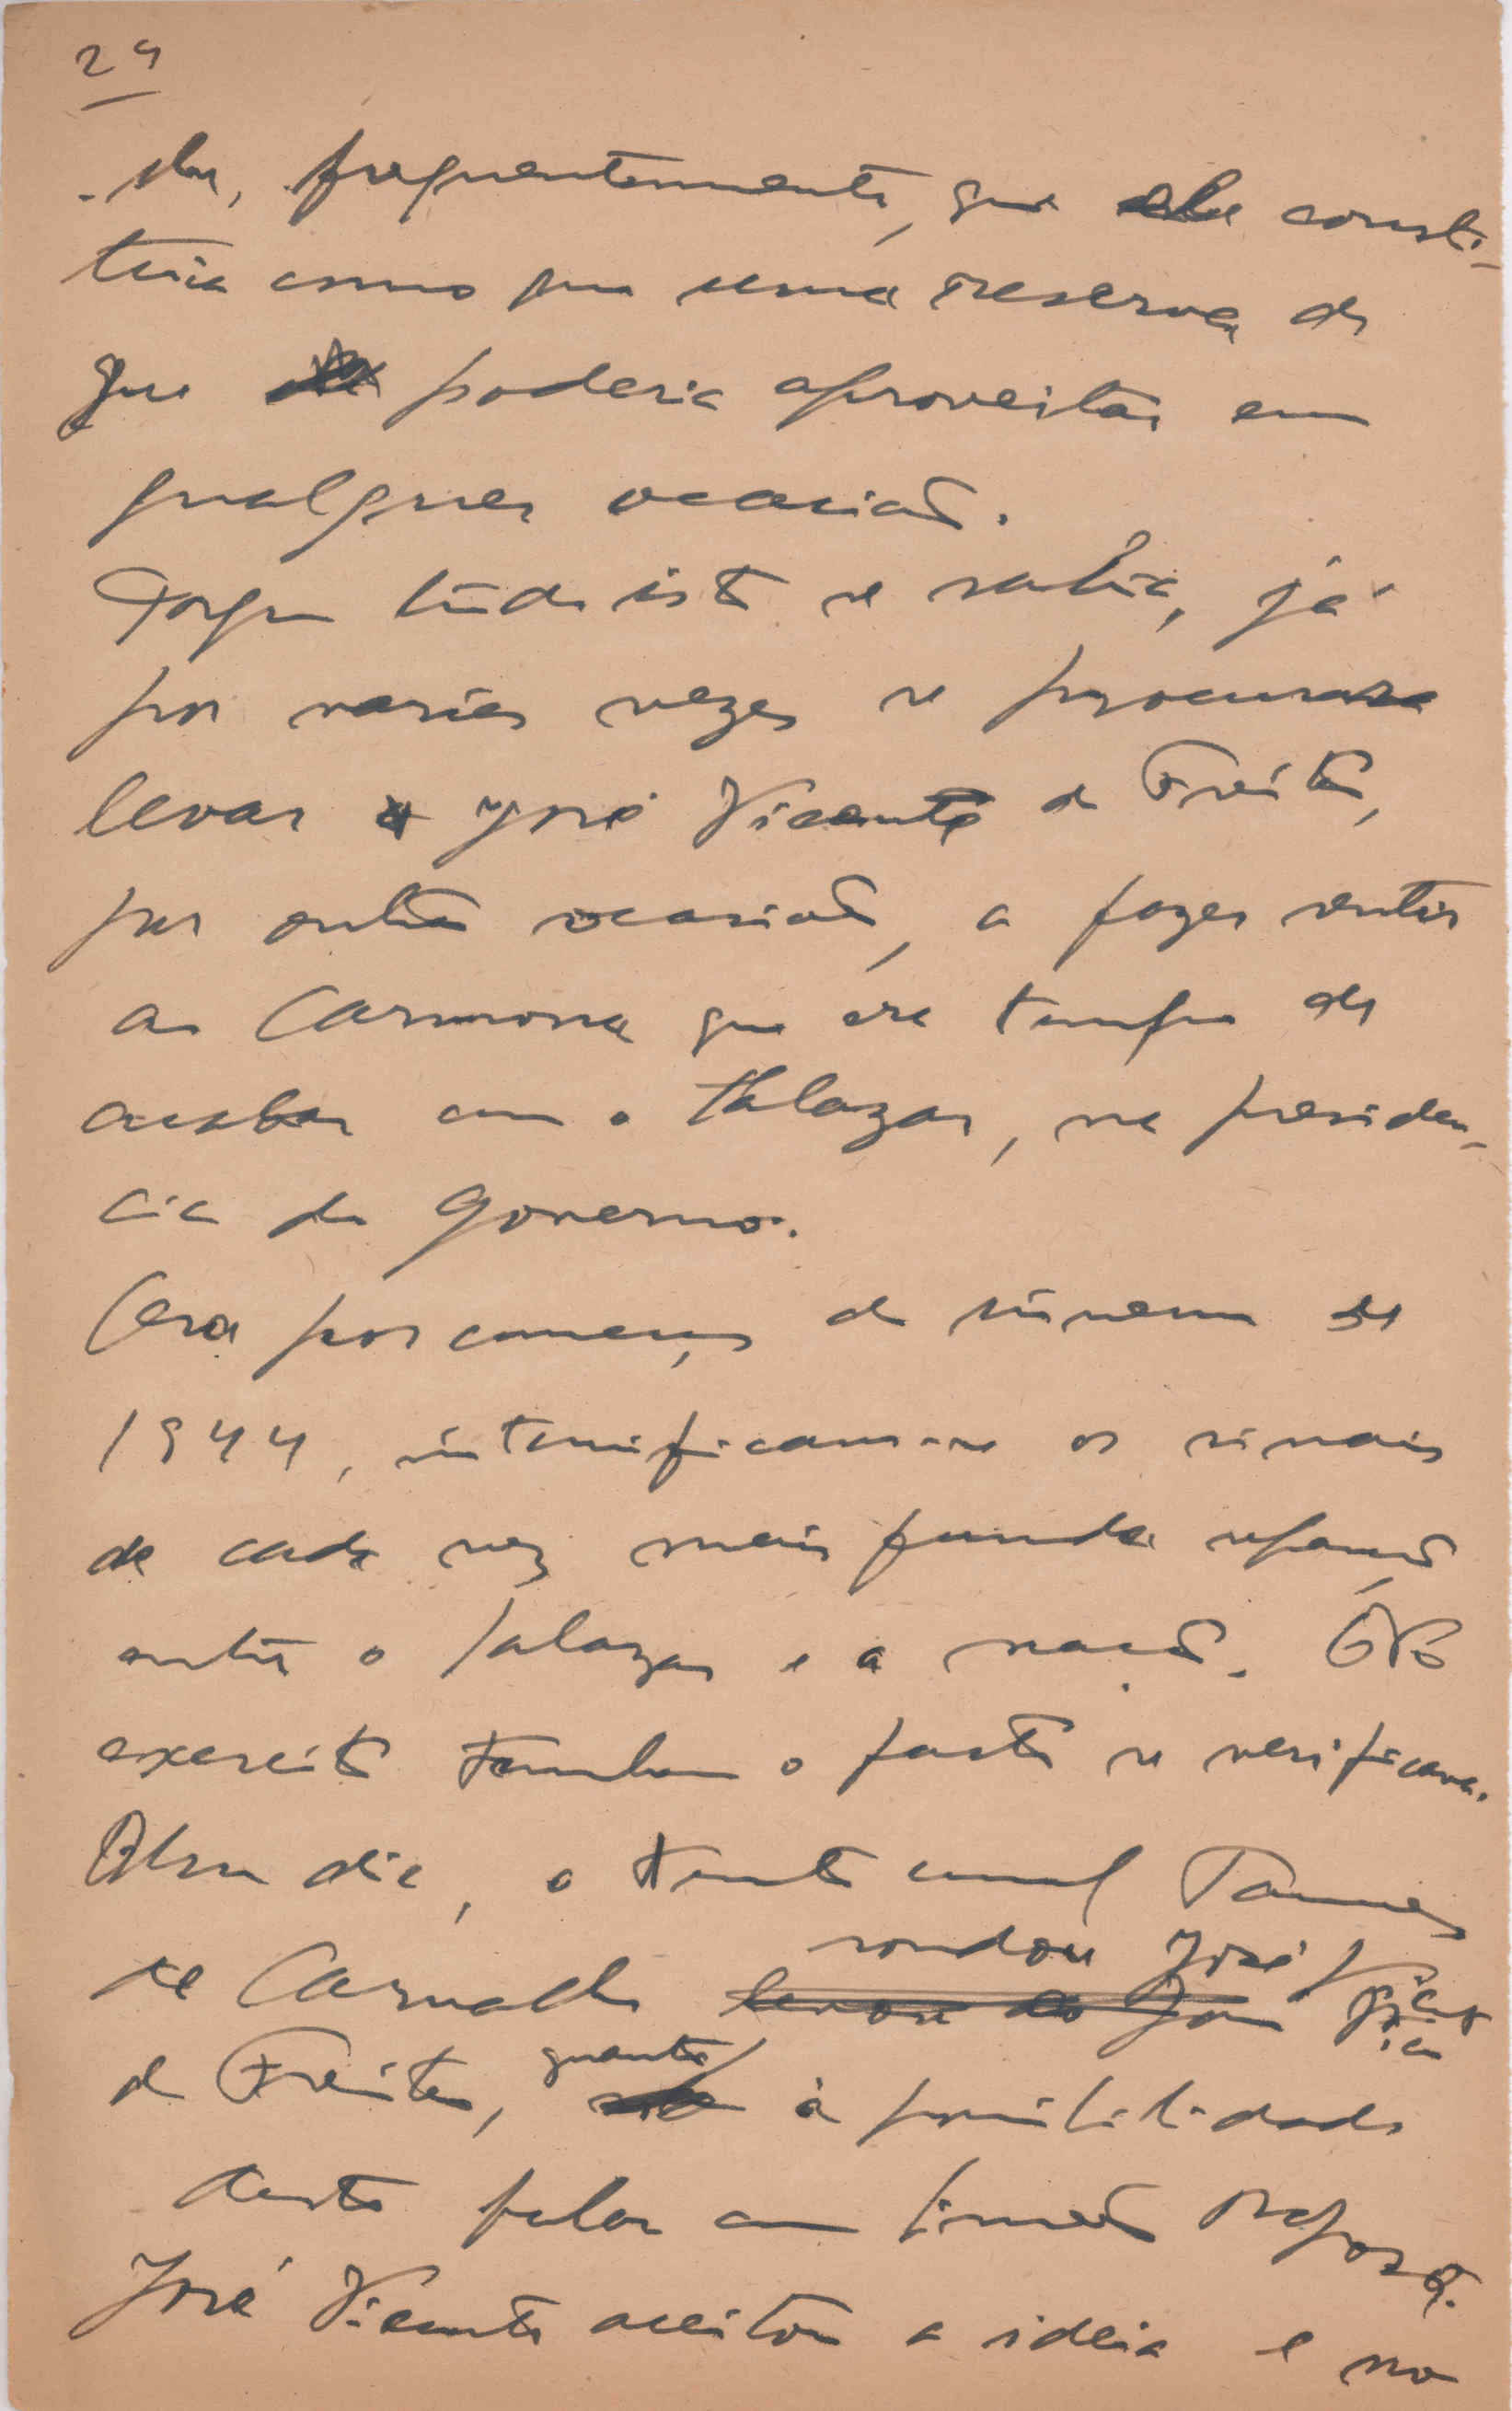 24
-dor, frequentemente, que ele consti-
tuia como que uma reserva de
que poderia aproveitar em
qualquer ocasião.
Porque tudo isto se sabia, já
por varias vezes se procurara
levar o José Vicente de Freitas,
por outra ocasião, a fazer sentir
ao Carmona que era tempo de
acabar com o Salazar, na presiden-
cia do Governo.
Cera por começos de
1944, intensificam-se os sinais
de cada vez mais funda separação
entre o Salazar e a nação. No
exercito tambem o facto se verificava.
Um dia, o tenente coronel Tamagnini
de Carvalho sondou José Vicente
de Freitas, quanto à possibilidade
deste falar com Fragoso.
José Vicente aceitou a ideia e no